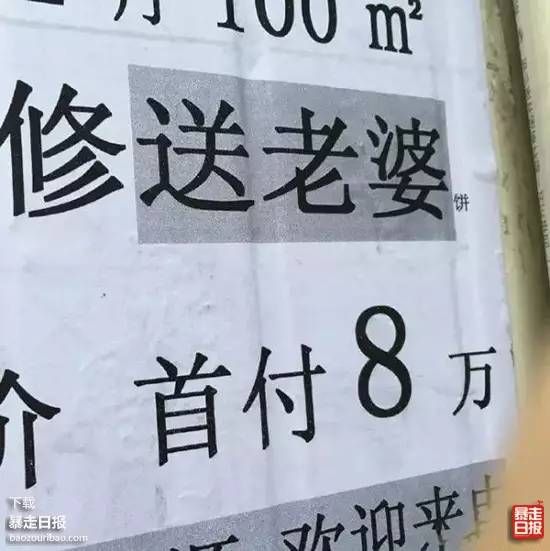 100 m²
修送老婆饼
价 首付8万
欢迎来电
下载
暴走日报
baozouribao.com
暴走
日报